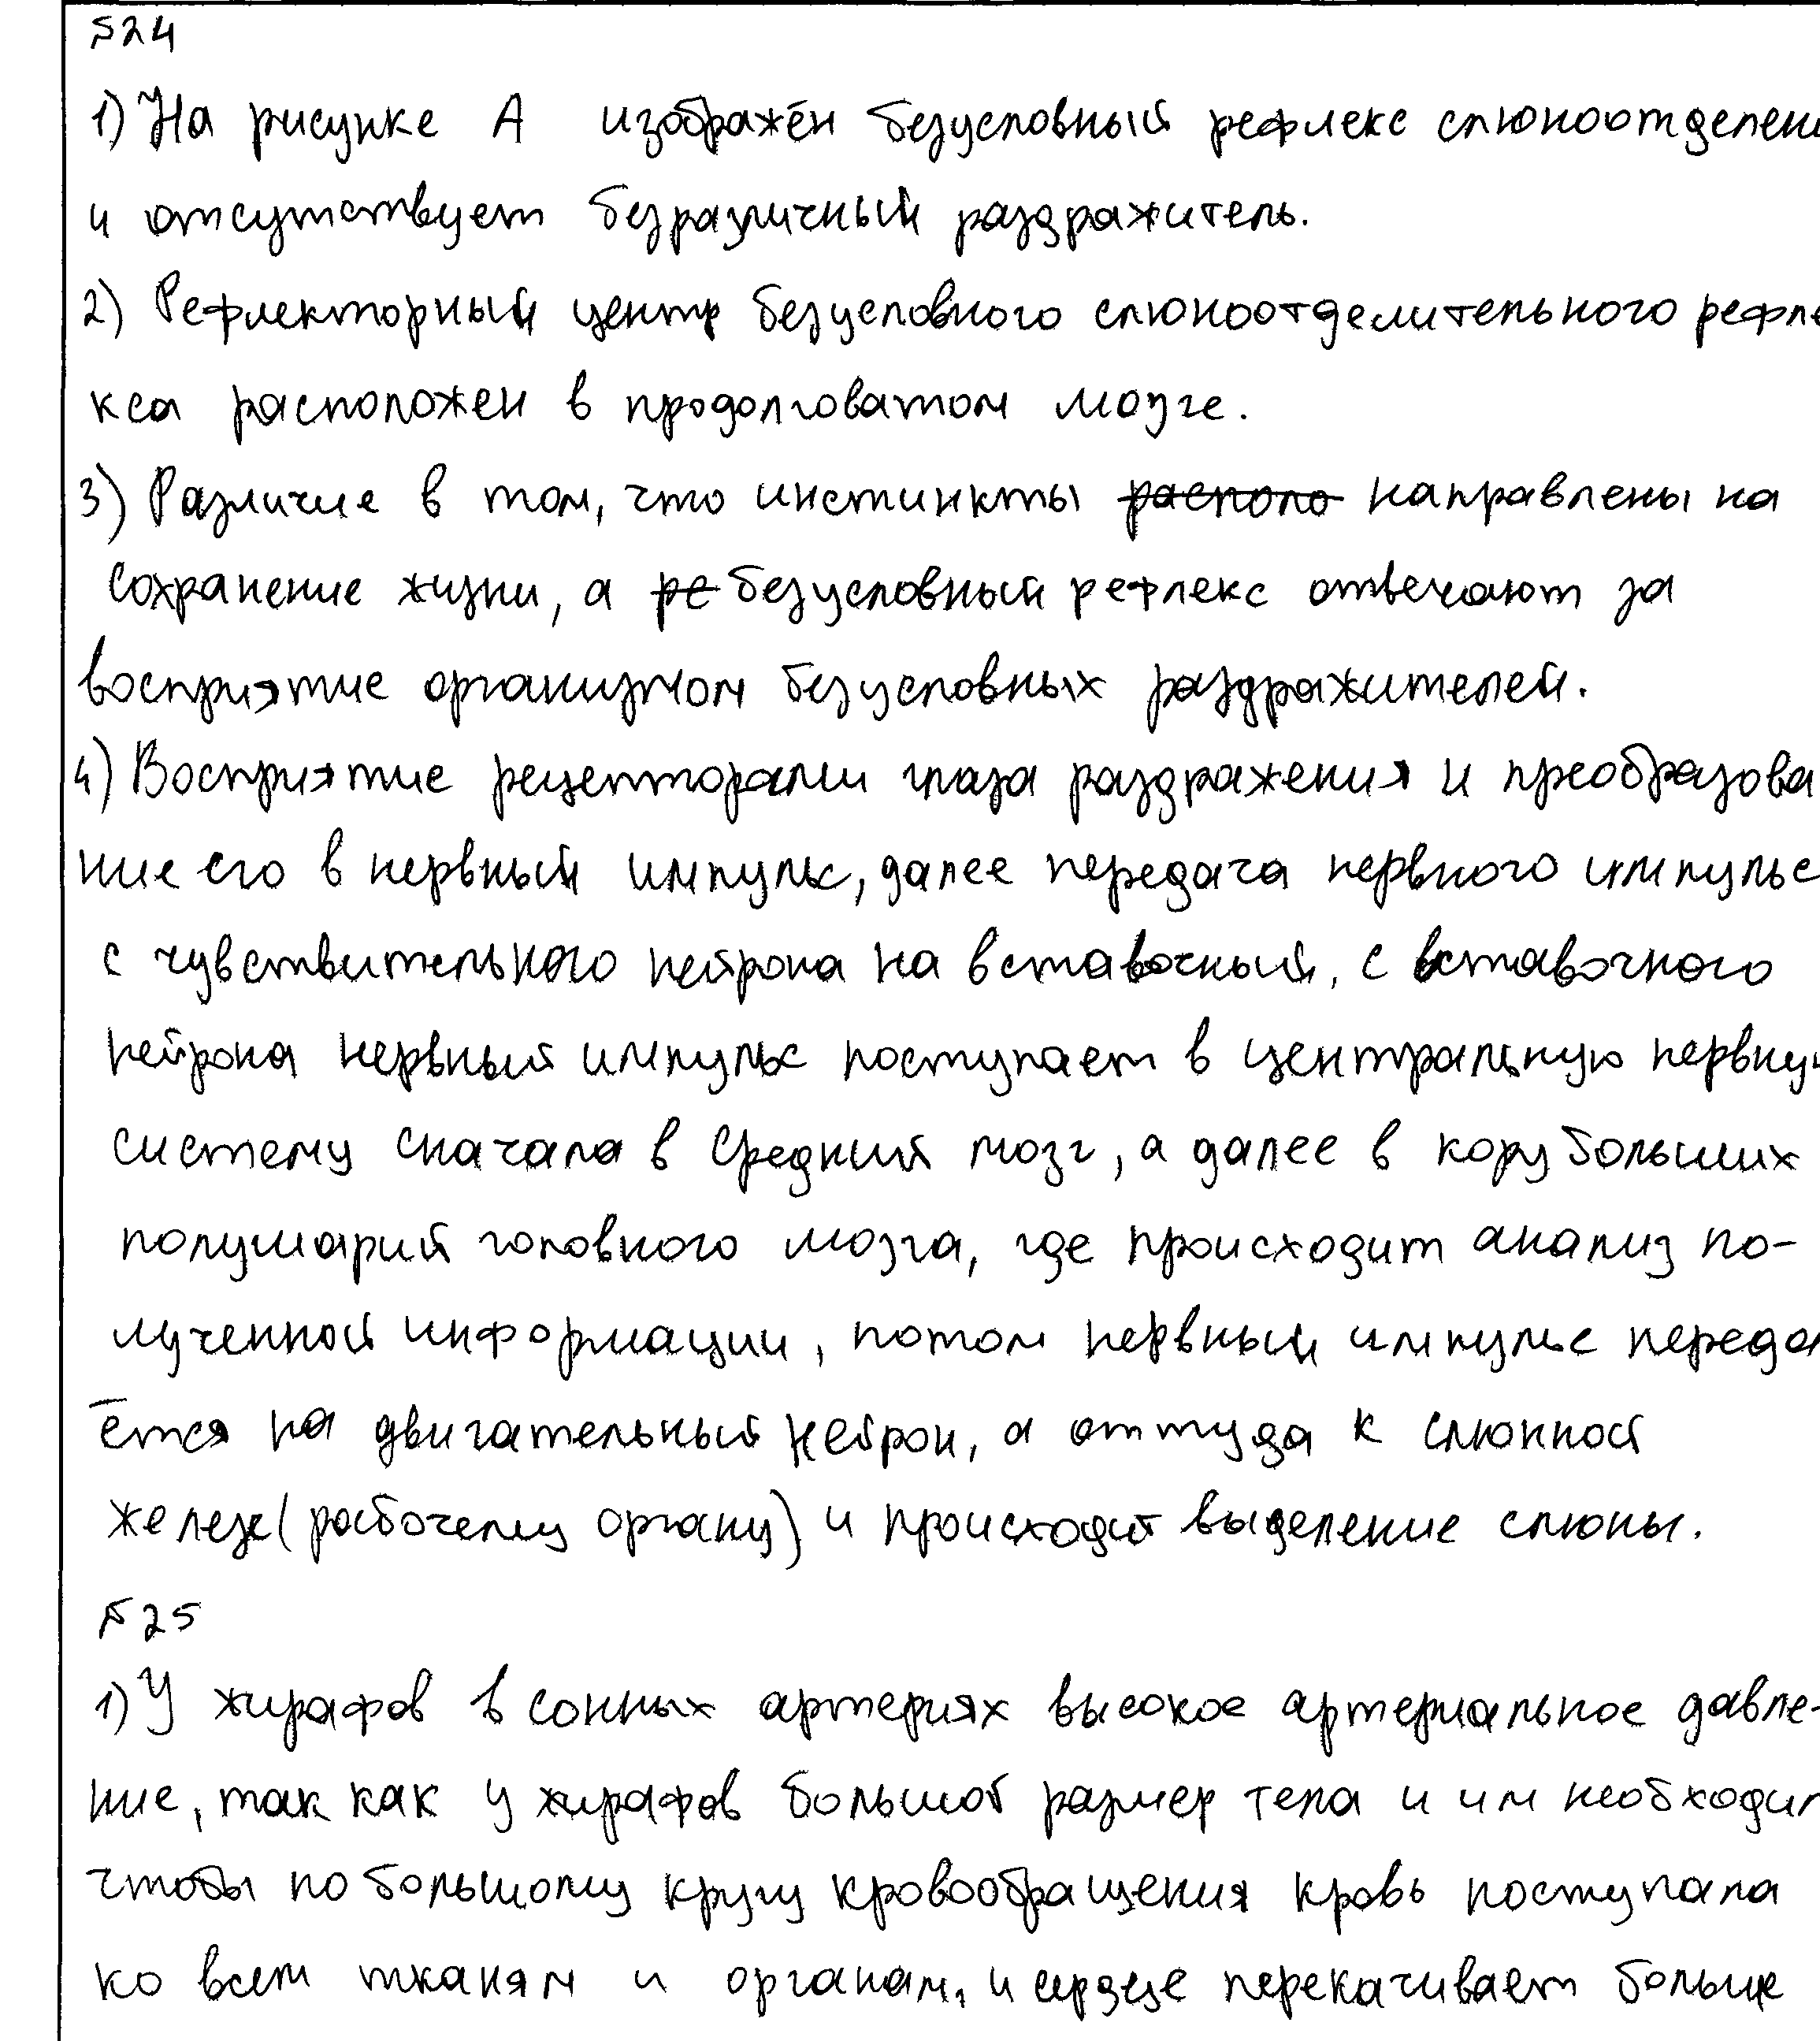 №24
1) На рисунке А изображён безусловный рефлекс слюноотделени
и отсутствует безразличный раздражитель.
2) Рефлекторный центр безусловного слюноотделительного рефле
кса расположен в продолговатом мозге.
3) Различие в том, что инстинкты располо направлены на
сохранение жизни, а ре безусловный рефлекс отвечают за
восприятие организмом безусловных раздражителей.
4) Восприятие рецепторами глаза раздражения и преобразова
ние его в нервный импульс, далее передача нервного импульс
с чувствительного нейрона на вставочный, с вставочного
нейрона нервный импульс поступает в центральную нервную
систему сначала в средний мозг, а далее в кору больших
полушарий головного мозга, где происходит анализ по-
лученной информации, потом нервный импульс переда
ётся на двигательный нейрон, а оттуда к слюнной
железе (рабочему органу) и происходит выделение слюны.
№25
1) У жирафов в сонных артериях высокое артериальное давле-
ние, так как у жирафов большой размер тела и им необходим
чтобы по большому кругу кровообращения кровь поступала
ко всем тканям и органам, и сердце перекачивает больше